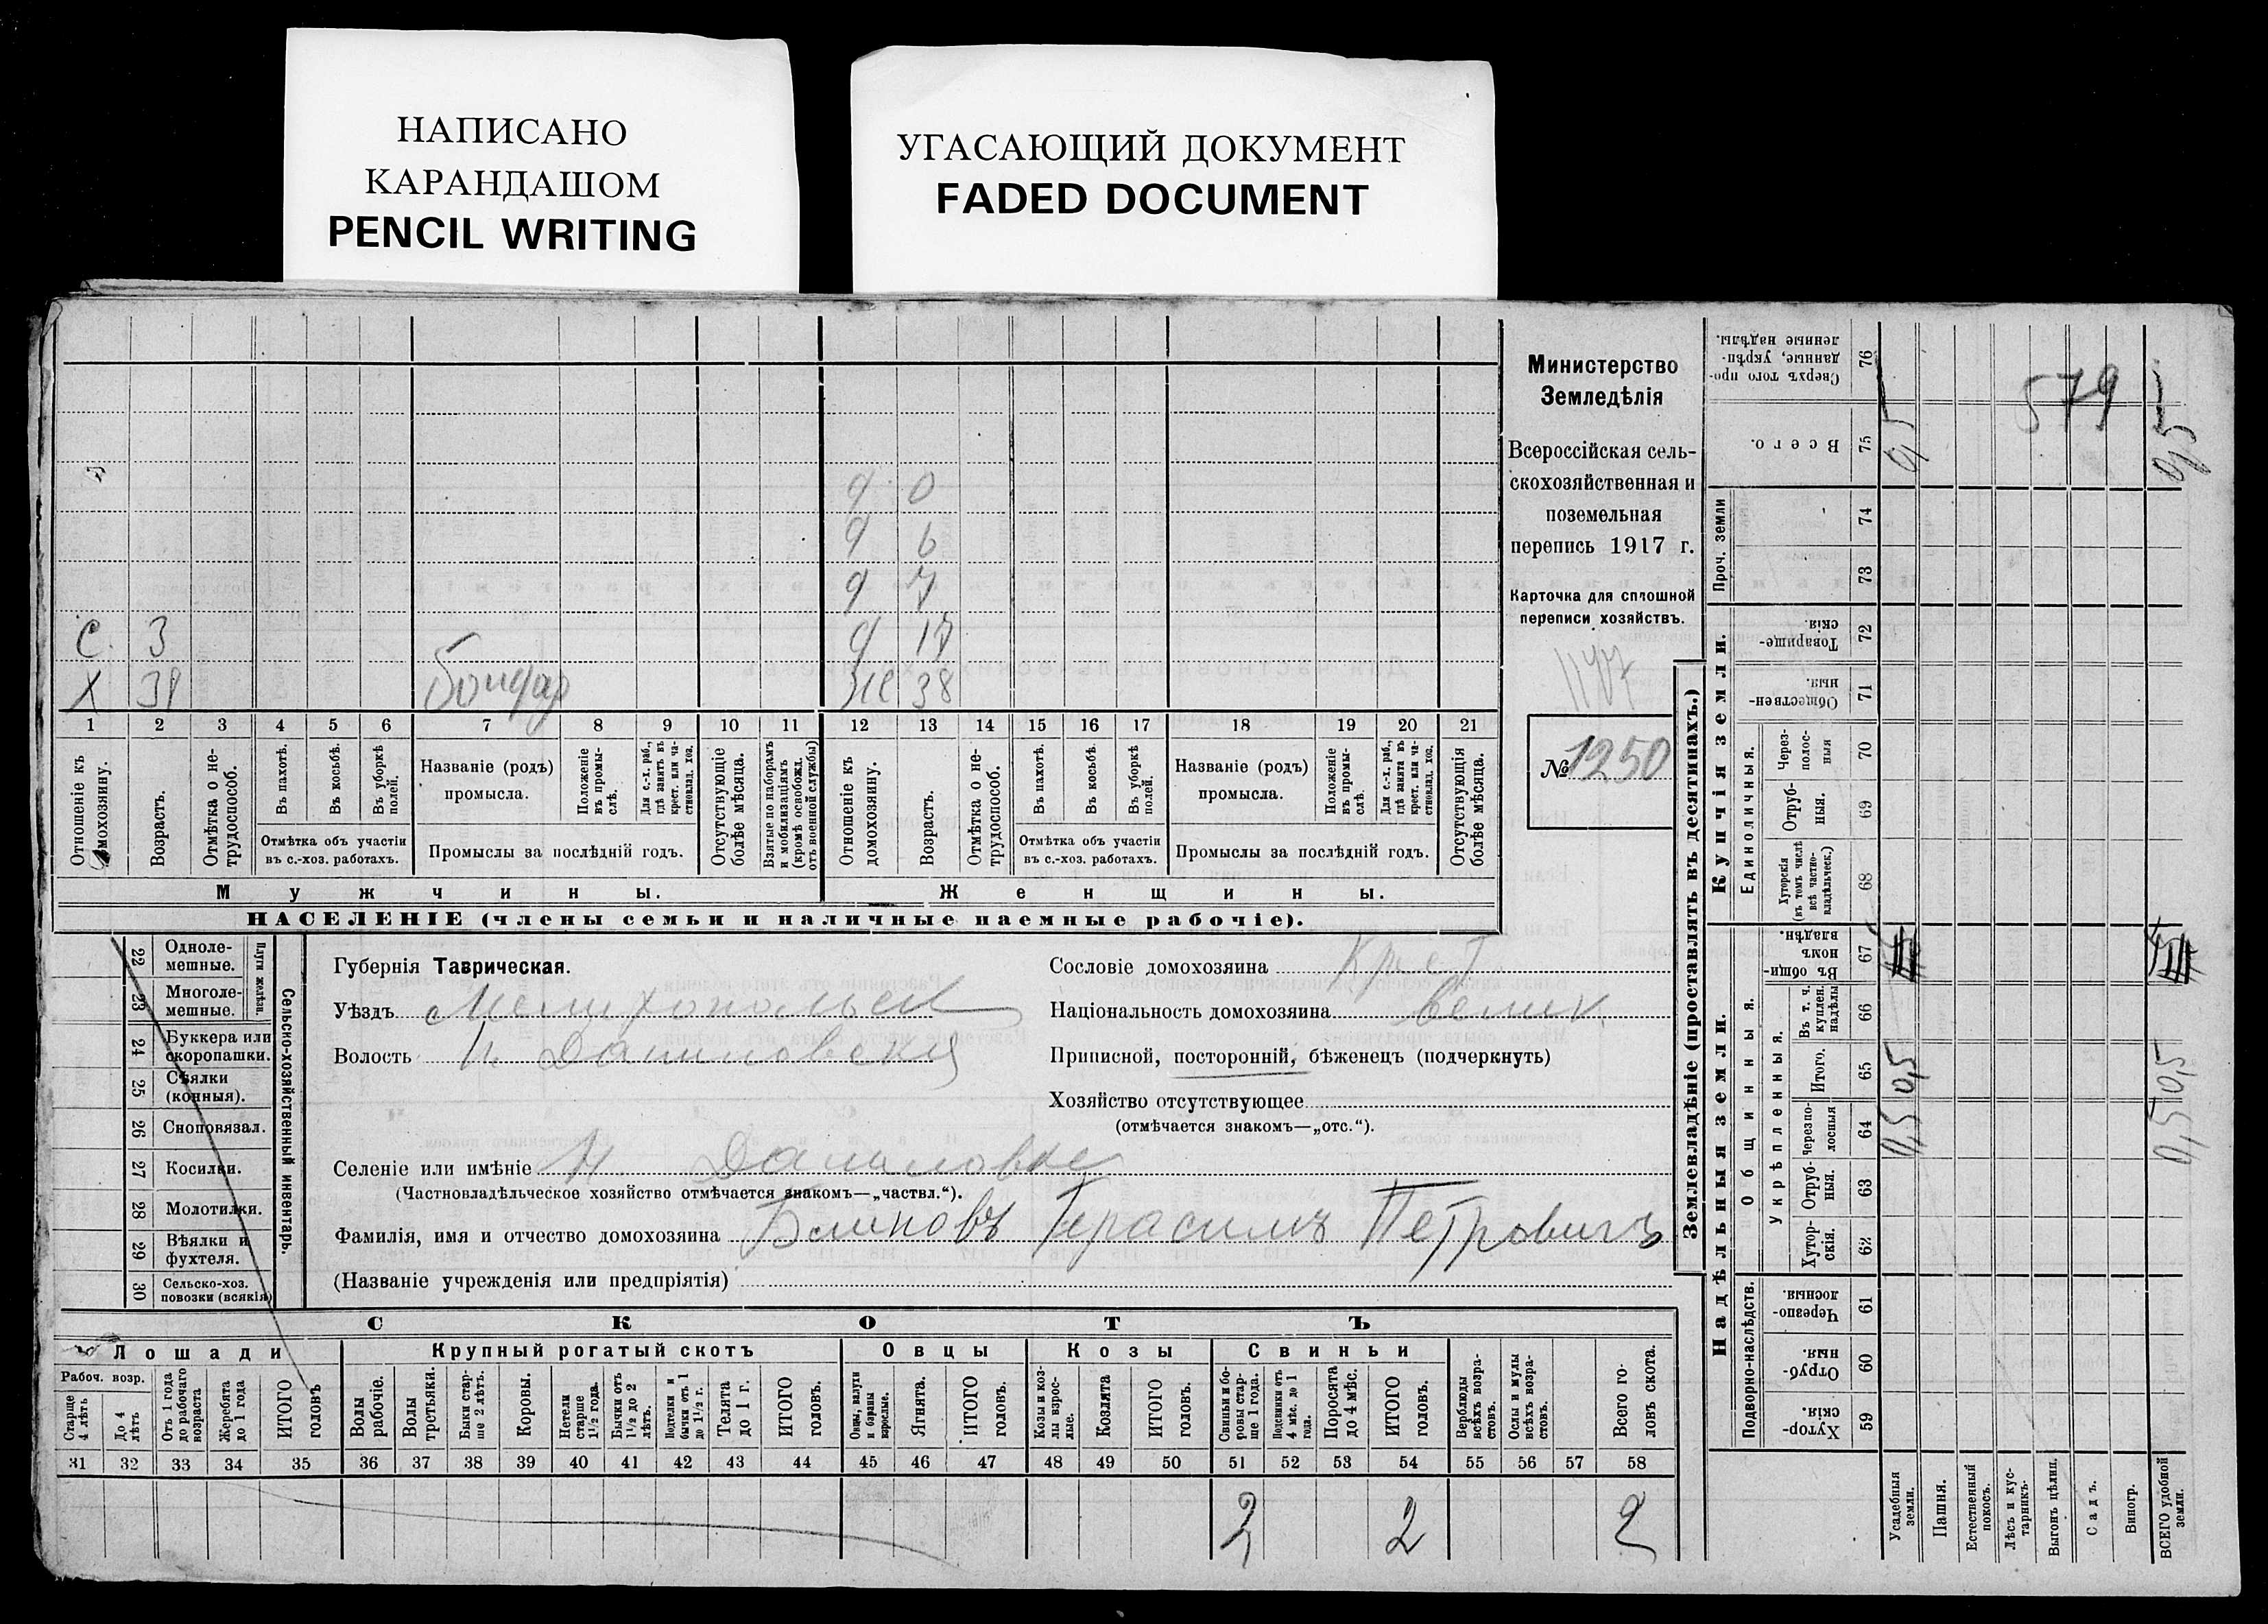 НАПИСАНО
КАРАНДАШОМ
PENCIL WRITING
УГАСАЮЩИЙ ДОКУМЕНТ
FADED DOCUMENT
д 0
д 6
д 7
С. 3 д 17
Х 39 Бондар Же 38
1 2 3 4 5 6 7 8 9 10 11 12 13 14 15 16 17 18 19 20 21
Отношеніе къ домохозяину.
Возрастъ.
Отмѣтка о не-
трудоспособ.
Въ пахотѣ.
Въ косьбѣ.
Въ уборкѣ
полей.
Отмѣтка объ участіи
въ с.-хоз. работахъ.
Названіе (родъ)
промысла.
Положеніе
въ промы-
слѣ.
Для с.-х. раб.,
гдѣ занятъ въ
крест. или ча-
стновлад. хоз.
Промыслы за послѣдній годъ.
Отсутствующіе
болѣе мѣсяца.
Взятые по наборамъ
и мобилизаціямъ
(кромѣ освобожд.
отъ военной службы)
Отношеніе къ
домохозяину.
Возрастъ.
Отмѣтка о не-
трудоспособ.
Въ пахотѣ.
Въ косьбѣ.
Въ уборкѣ
полей.
Отмѣтка объ участіи
въ с.-хоз. работахъ.
Названіе (родъ)
промысла.
Положеніе
въ промы-
слѣ.
Для с.-х. раб.,
гдѣ занята въ
крест. или ча-
стновлад. хоз.
Промыслы за послѣдній годъ.
Отсутствующія
болѣе мѣсяца.
Мужчины.
Женщины.
НАСЕЛЕНІЕ (члены семьи и наличные наемные рабочіе).
Министерство
Земледѣлія
Всероссійская сель-
скохозяйственная и
поземельная
перепись 1917 г.
Карточка для сплошной
переписи хозяйствъ.
1177
№ 1250
22 Одноле-
мешные.
23 Многоле-
мешные.
Плуги желѣзн.
24 Буккера или
скоропашки.
25 Сѣялки
(конныя).
26 Сноповязал.
27 Косилки.
28 Молотилки.
29 Вѣялки и
фухтеля.
30 Сельско-хоз.
повозки (всякія)
Сельско-хозяйственный инвентарь.
Губернія Таврическая.
Уѣздъ Мелитопольск
Волость Н. Даниловская
Сословіе домохозяина Крест
Національность домохозяина велик.
Приписной, посторонній, бѣженецъ (подчеркнуть)
Хозяйство отсутствующее
(отмѣчается знакомъ—„отс.“).
Селеніе или имѣніе Н. Даниловка
(Частновладѣльческое хозяйство отмѣчается знакомъ—„частвл.“).
Фамилія, имя и отчество домохозяина Блиновъ Герасимъ Петровичъ
(Названіе учрежденія или предпріятія)
СКОТЪ
Лошади
Крупный рогатый скотъ
Овцы
Козы
Свиньи
Рабоч. возр.
Старше
4 лѣтъ
До 4
лѣтъ
Отъ 1 года
до рабочаго
возраста
Жеребята
до 1 года
ИТОГО
головъ
Волы
рабочіе.
Волы
третьяки.
Быки стар-
ше 2 лѣтъ.
Коровы.
Нетели
старше
1½ года.
Бычки отъ
1½ до 2
лѣтъ.
Подтелки и
бычки отъ 1
до 1½ г.
Телята
до 1 г.
ИТОГО
головъ.
Овцы, валухи
и бараны
взрослые.
Ягнята.
ИТОГО
головъ.
Козы и коз-
лы взрос-
лые.
Козлята
ИТОГО
головъ.
Свиньи и бо-
ровы стар-
ше 1 года.
Подсвинки отъ
4 мѣс. до 1
года.
Поросята
до 4 мѣс.
ИТОГО
головъ.
Верблюды
всѣхъ возра-
стовъ.
Ослы и мулы
всѣхъ возра-
стовъ.
Всего го-
ловъ скота.
31 32 33 34 35 36 37 38 39 40 41 42 43 44 45 46 47 48 49 50 51 52 53 54 55 56 57 58
2 2 2
Землевладѣніе (проставлять въ десятинахъ.)
Купчія земли.
Надѣльныя земли.
Сверхъ того про-
данные, укрѣп-
ленные надѣлы.
76
Всего.
75
0,5
579
0,5
Проч. земли
74
73
Товарище-
скія.
72
Обществен-
ныя.
71
Единоличныя.
Через-
полос-
ныя
70
Отруб-
ныя.
69
Хуторскія
(въ томъ числѣ
всѣ частно-
владѣльческ.)
68
Общинныя.
Въ общи-
номъ
владѣн.
67
Укрѣпленныя.
Въ т. ч.
куплен.
надѣлы
66
Итого.
65
0,5
0,5
Черезпо-
лосныя
64
0,5
0,5
Отруб-
ныя.
63
Хутор-
скія.
62
Подворно-наслѣдств.
Черезпо-
лосныя.
61
Отруб-
ныя.
60
Хутор-
скія.
59
Усадебныя
земли.
Пашня.
Естественный
покосъ.
Лѣсъ и кус-
тарникъ.
Выгонъ цѣлин.
Садъ.
Виногр.
ВСЕГО удобной
земли.